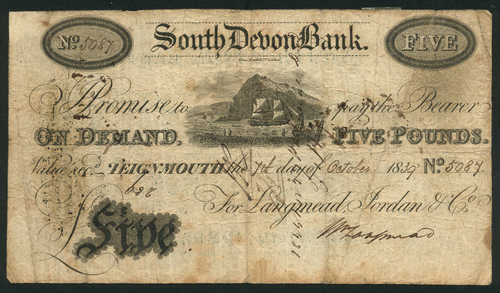 No. 5087. South Devon Bank. FIVE
I Promise to pay the Bearer
ON DEMAND, FIVE POUNDS.
Value recd. TEIGNMOUTH, the 1st day of October 1839 No. 5087.
For Langmead, Jordan & Co.
£ Five Wm Langmead